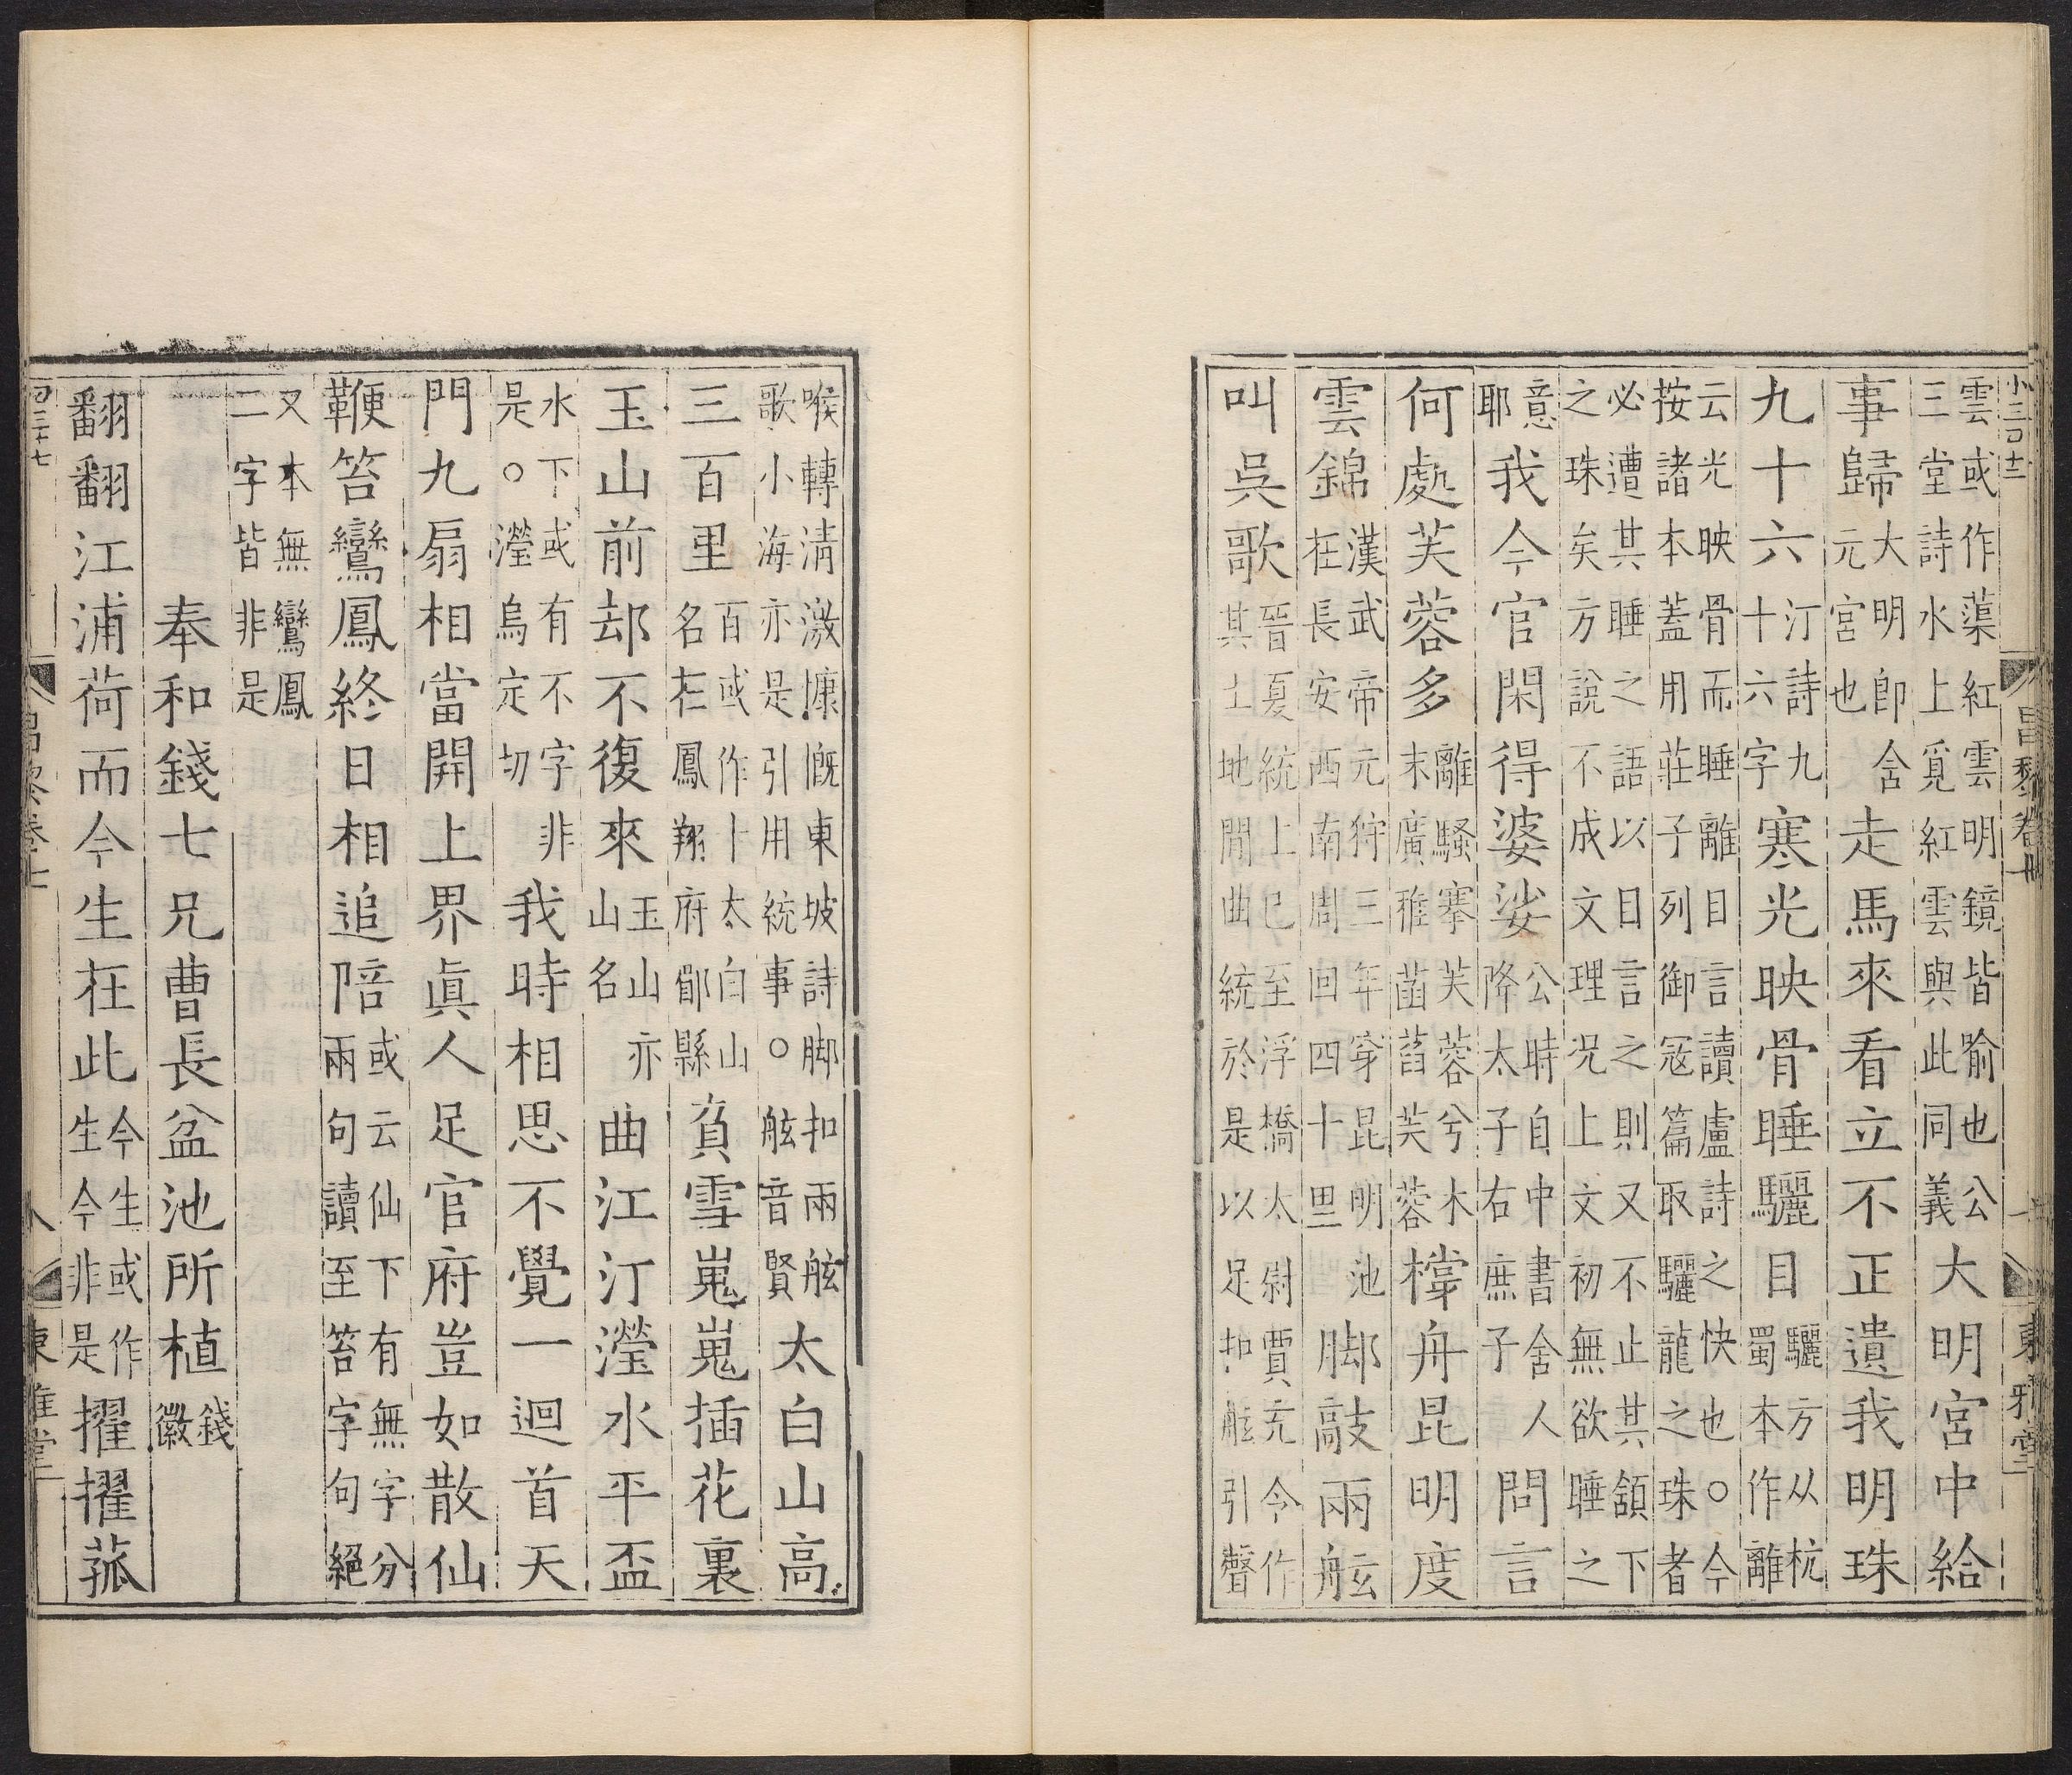 小三百十二
昌黎卷七
東雅堂
雲或作蕖紅雲明鏡皆喻也公三堂詩水上覓紅雲與此同義大明宮中給
事歸大明即含元宮也走馬來看立不正遺我明珠
九十六汀詩九十六字寒光映骨睡驪目驪方从杭蜀本作離
云光映骨而睡離目言讀盧詩之快也○今按諸本蓋用莊子列御寇篇取驪龍之珠者
必遭其睡之語以目言之則又不止其頷下之珠矣方說不成文理況上文初無欲睡之
意耶我今官閑得婆娑公時自中書舍人降太子右庶子問言
何處芙蓉多離騷搴芙蓉兮木末廣雅菡萏芙蓉撑舟昆明度
雲錦漢武帝元狩三年穿昆明池在長安西南周回四十里脚敲兩舷
叫吳歌晉夏統上巳至浮橋太尉賈充令作其土地間曲統於是以足扣舷引聲
喉轉清激慷慨東坡詩脚扣兩舷歌小海亦是引用統事○舷音賢太白山高
三百里百或作卜太白山名在鳳翔府郿縣負雪嵬嵬插花裏
玉山前却不復來玉山亦山名曲江汀瀅水平盃
水下或有不字非是○瀅烏定切我時相思不覺一迴首天
門九扇相當開上界眞人足官府豈如散仙
鞭笞鸞鳳終日相追陪或云仙下有無字分兩句讀至笞字句絕
又本無鸞鳳二字皆非是
奉和錢七兄曹長盆池所植錢徽
翻翻江浦荷而今生在此今生或作生今非是擢擢菰
昌黎卷七
八
東雅堂